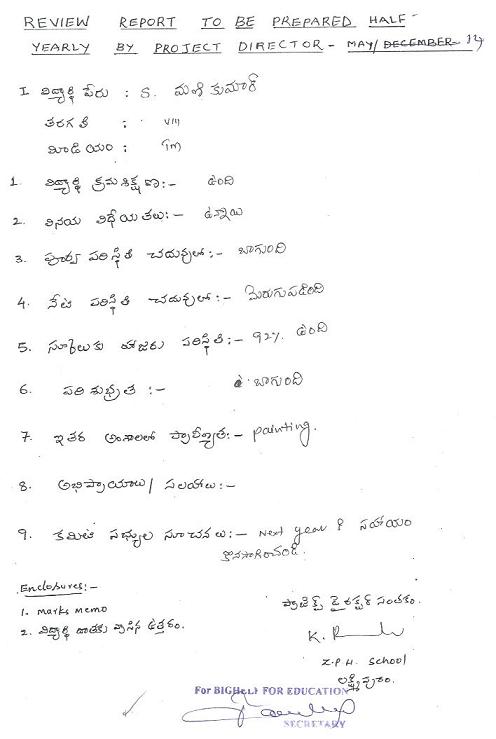 REVIEW REPORT TO BE PREPARED HALF-
YEARLY BY PROJECT DIRECTOR - MAY/DECEMBER-
I విద్యార్థి పేరు : S. మణికుమార్
తరగతి : VIII
మీడియం : TM
1. విద్యార్థి క్రమశిక్షణ:- ఉంది
2. వినయ విధేయతలు:- ఉన్నాయి
3. పూర్వ పరిస్థితి చదువులో:- బాగుంది
4. నేటి పరిస్థితి చదువులో:- మెరుగుపడింది
5. స్కూలుకు హాజరు పరిస్థితి:- 92% ఉంది
6. పరిశుభ్రత :- బాగుంది
7. ఇతర అంశాలలో ప్రావీణ్యత:- painting.
8. అభిప్రాయాలు/ సలహాలు:-
9. కమిటి సభ్యుల సూచనలు:- Next year కి సహాయం
కొనసాగించండి.
Enclosures:-
1. Marks memo
2. విద్యార్థి దాతకు వ్రాసిన ఉత్తరం.
ప్రాజెక్ట్ డైరక్టర్ సంతకం.
Z.P.H. School
లక్ష్మీపురం.
For BIGHELP FOR EDUCATION
SECRETARY